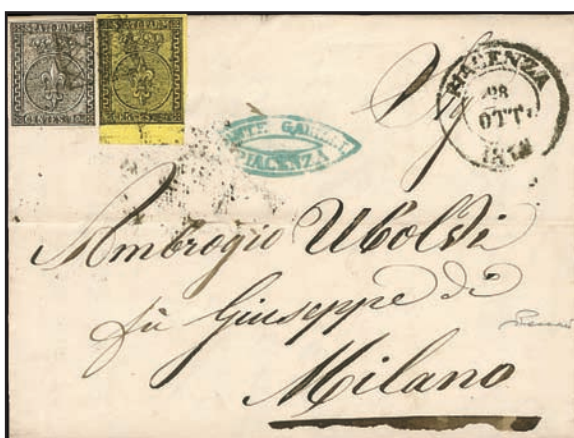 STATI PARM.
CENTES.
STATI PARM.
CENTES.
PIACENZA
28
OTT.
PIACENZA
Ambrogio Uboldi
fù Giuseppe di
Milano